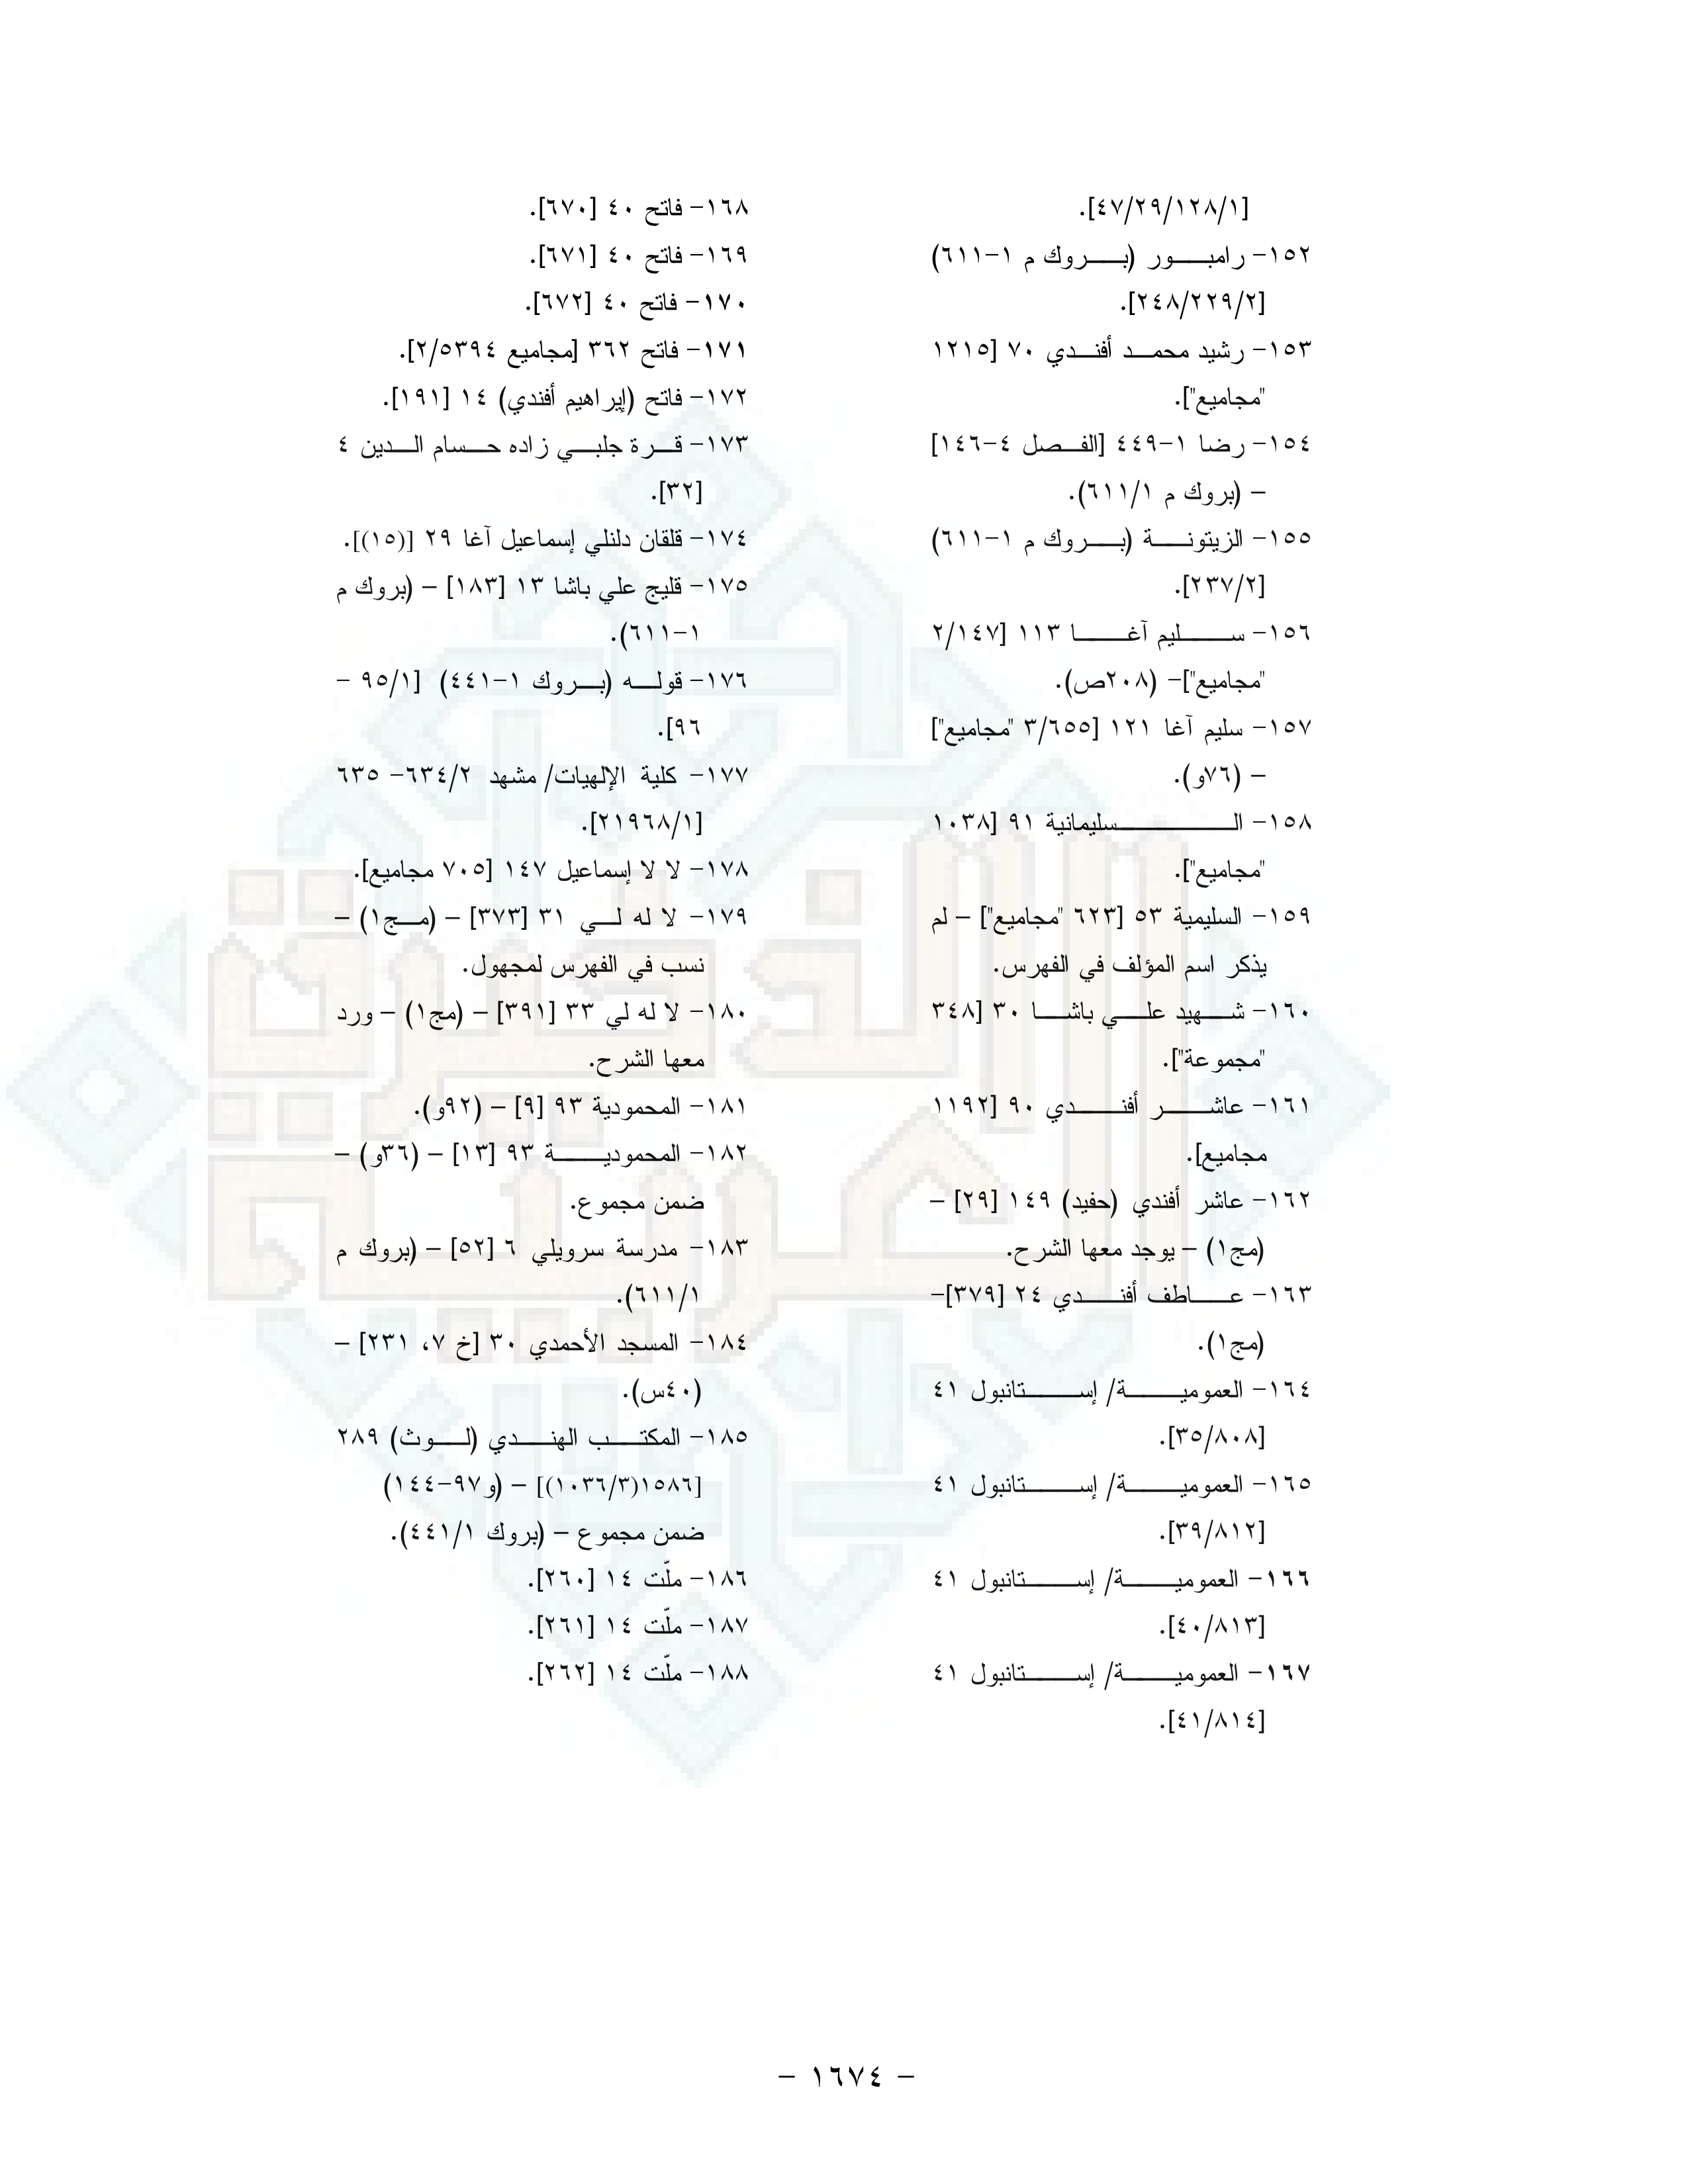 [٤٧/٢٩/١٢٨/١].
١٥٢- رامبور (بروك م ١-٦١١)
[٢٤٨/٢٢٩/٢].
١٥٣- رشيد محمد أفندي ٧٠ [١٢١٥
"مجاميع"].
١٥٤- رضا ١-٤٤٩ [الفصل ٤-١٤٦]
- (بروك م ٦١١/١).
١٥٥- الزيتونة (بروك م ١-٦١١)
[٢٣٧/٢].
١٥٦- سليم آغا ١١٣ [٢/١٤٧
"مجاميع"]- (٢٠٨ص).
١٥٧- سليم آغا ١٢١ [٣/٦٥٥ "مجاميع"]
- (٧٦و).
١٥٨- السليمانية ٩١ [١٠٣٨
"مجاميع"].
١٥٩- السليمية ٥٣ [٦٢٣ "مجاميع"] - لم
يذكر اسم المؤلف في الفهرس.
١٦٠- شهيد علي باشا ٣٠ [٣٤٨
"مجموعة"].
١٦١- عاشر أفندي ٩٠ [١١٩٢
مجاميع].
١٦٢- عاشر أفندي (حفيد) ١٤٩ [٢٩] -
(مج١) - يوجد معها الشرح.
١٦٣- عاطف أفندي ٢٤ [٣٧٩]-
(مج١).
١٦٤- العمومية/ إستانبول ٤١
[٣٥/٨٠٨].
١٦٥- العمومية/ إستانبول ٤١
[٣٩/٨١٢].
١٦٦- العمومية/ إستانبول ٤١
[٤٠/٨١٣].
١٦٧- العمومية/ إستانبول ٤١
[٤١/٨١٤].
١٦٨- فاتح ٤٠ [٦٧٠].
١٦٩- فاتح ٤٠ [٦٧١].
١٧٠- فاتح ٤٠ [٦٧٢].
١٧١- فاتح ٣٦٢ [مجاميع ٢/٥٣٩٤].
١٧٢- فاتح (إبراهيم أفندي) ١٤ [١٩١].
١٧٣- قرة جلبي زاده حسام الدين ٤
[٣٢].
١٧٤- قلقان دلنلي إسماعيل آغا ٢٩ [(١٥)].
١٧٥- قليج علي باشا ١٣ [١٨٣] - (بروك م
١-٦١١).
١٧٦- قوله (بروك ١-٤٤١) [٩٥/١ -
٩٦].
١٧٧- كلية الإلهيات/ مشهد ٦٣٤/٢- ٦٣٥
[٢١٩٦٨/١].
١٧٨- لا لا إسماعيل ١٤٧ [٧٠٥ مجاميع].
١٧٩- لا له لي ٣١ [٣٧٣] - (مج١) -
نسب في الفهرس لمجهول.
١٨٠- لا له لي ٣٣ [٣٩١] - (مج١) - ورد
معها الشرح.
١٨١- المحمودية ٩٣ [٩] - (٩٢و).
١٨٢- المحمودية ٩٣ [١٣] - (٣٦و) -
ضمن مجموع.
١٨٣- مدرسة سرويلي ٦ [٥٢] - (بروك م
٦١١/١).
١٨٤- المسجد الأحمدي ٣٠ [خ ٧، ٢٣١] -
(٤٠س).
١٨٥- المكتب الهندي (لوث) ٢٨٩
[١٥٨٦(١٠٣٦/٣)] - (و٩٧-١٤٤)
ضمن مجموع - (بروك ٤٤١/١).
١٨٦- ملّت ١٤ [٢٦٠].
١٨٧- ملّت ١٤ [٢٦١].
١٨٨- ملّت ١٤ [٢٦٢].
- ١٦٧٤ -